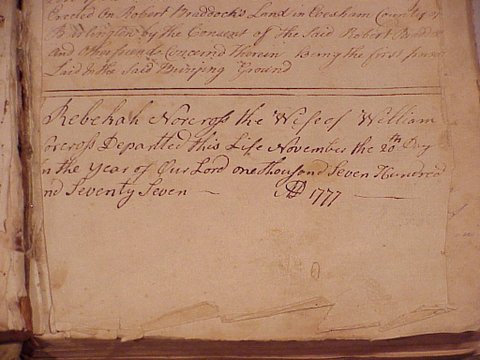 Erected On Robert Braddock's Land in Evesham County of
Burlington by the Consent of the Said Robert Braddock
And Other friends Concernd Therein being the first person
Laid In the Said Burying Ground
Rebekah Norcross the Wife of William
orcross Departted this Life November the 20th Day
n the Year of Our Lord one thousand Seven Hundred
nd Seventy Seven — AD 1777 —